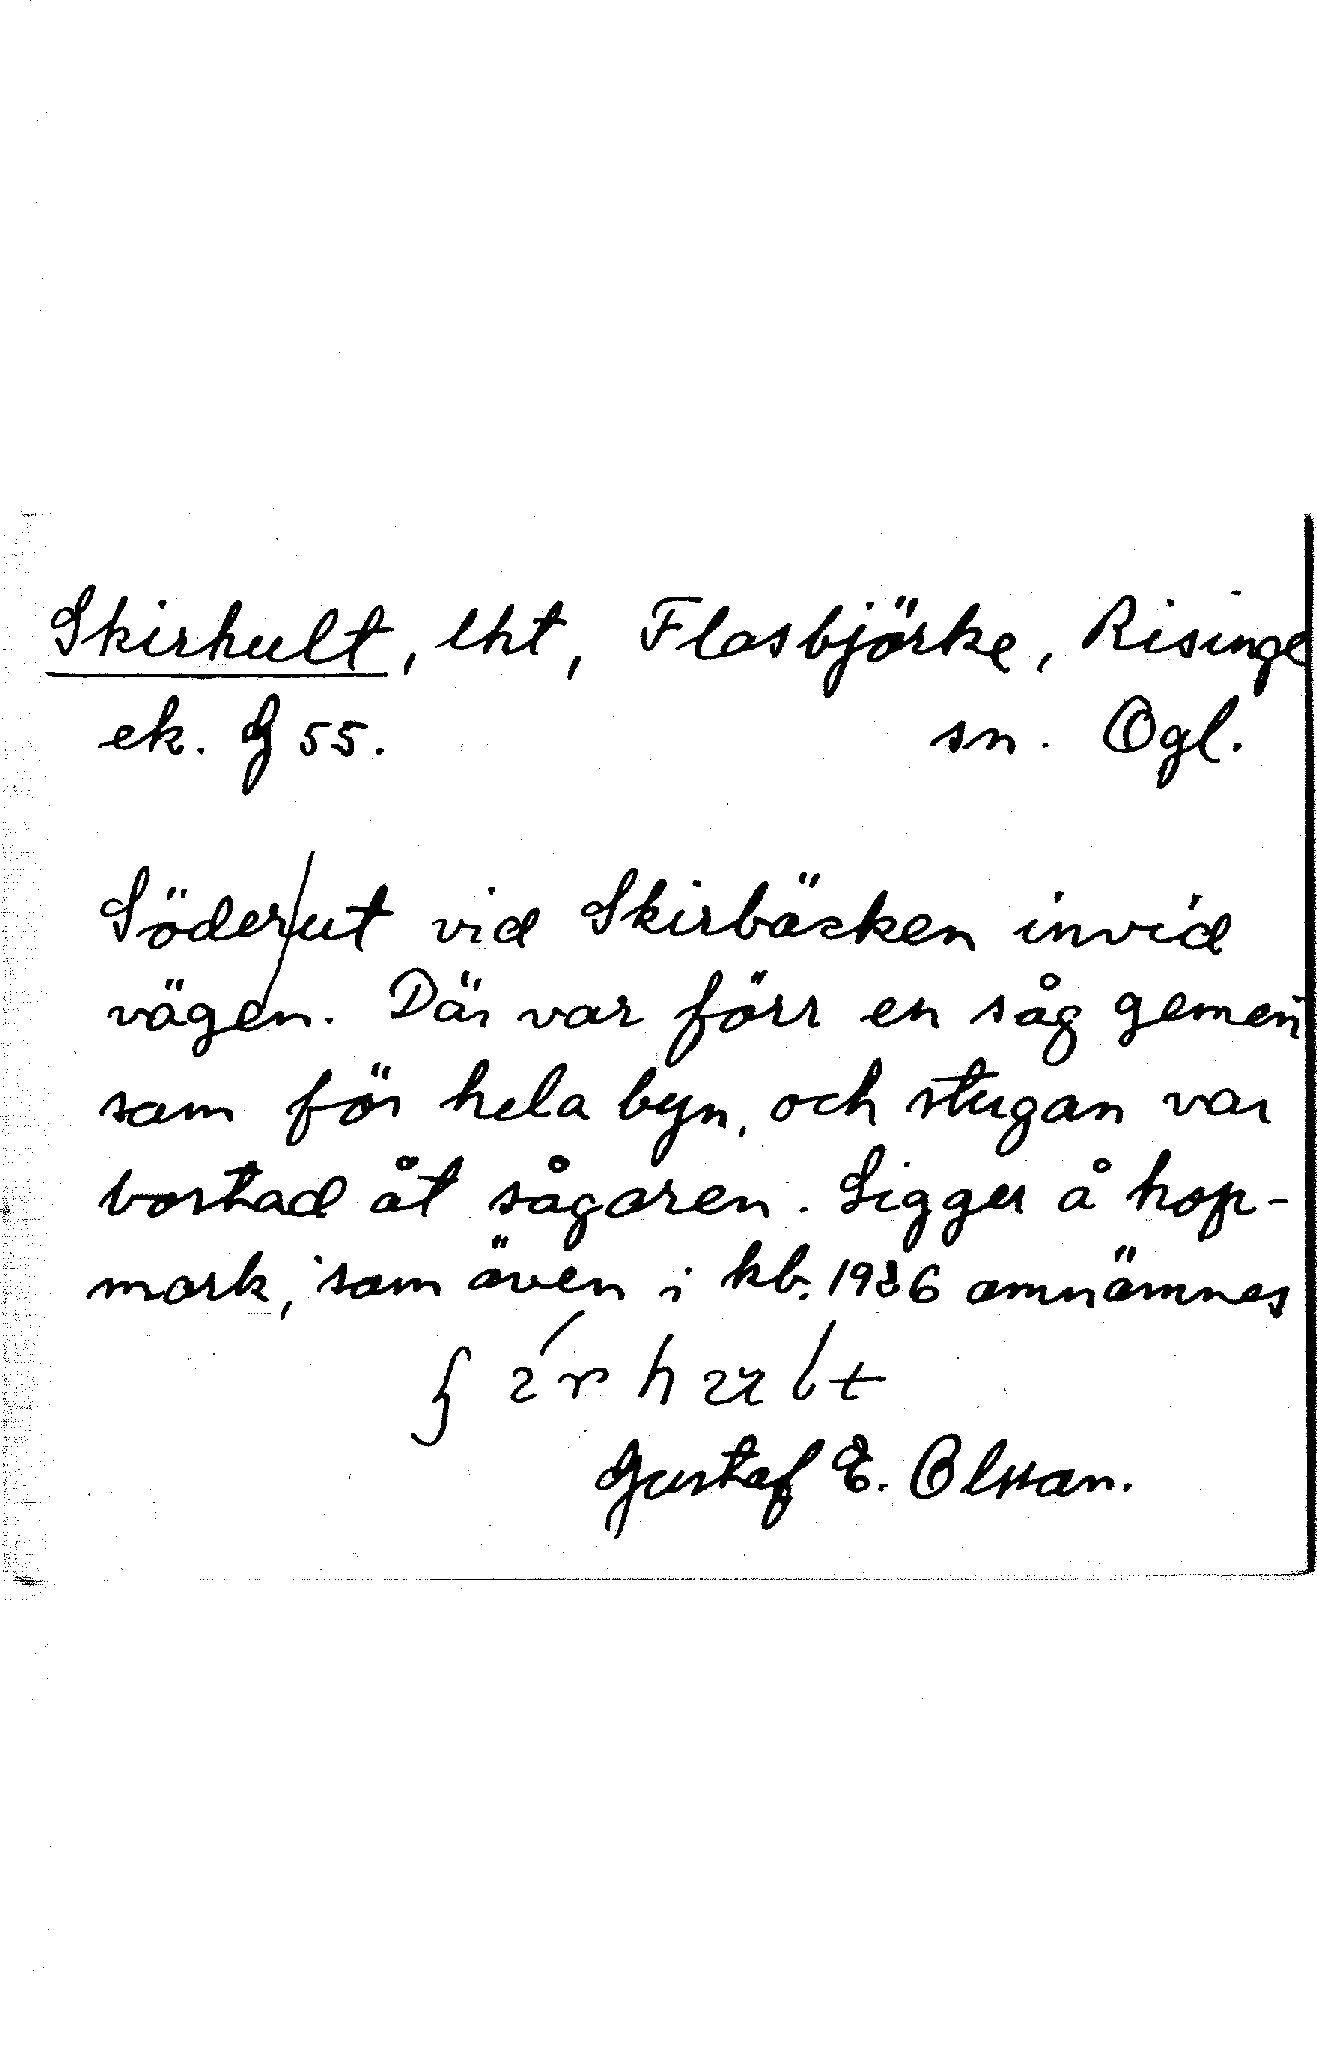 Skirhult, lht, Flasbjörke, Risinge
ek. G 55. sn. Ögl.
Söder/ut vid Skirbäcken invid
vägen. Där var förr en såg gemen
sam för hela byn, och stugan var
bostad åt sågaren. Ligger å hop-
mark, som även i kb. 1936 omnämnes
Gustaf E. Olsson.